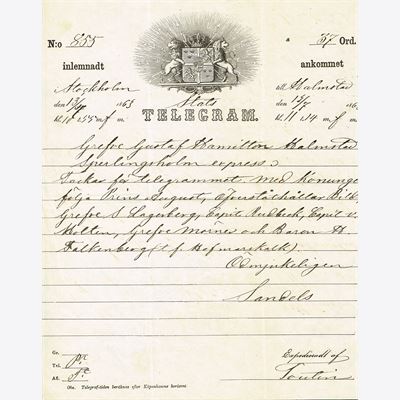 N:o 855
a 37 Ord.
inlemnadt
ankommet
Stockholm
Stats
till Halmstad
den 13/7 1865
den 13/7 186
TELEGRAM.
kl. 11 55 m f m.
kl. 11 54 m. f m.
Grefve Gustaf Hamilton Halmstad
Sperlingsholm express.
Tackar för telegrammet. Med Konungen
följa Prins August, Öfverståthållar Bildt
Grefve S Lagerberg, Capit Rudbeck, Capit v.
Holten, Grefve Mörner och Baron H
Falkenberg (t. f. Hofmarskalk).
Ödmjukeligen
Sandels
Gr.
Tel.
Af.
Expedieradt af
Obs. Telegraf-tiden beräknas efter Köpenhamns horizont